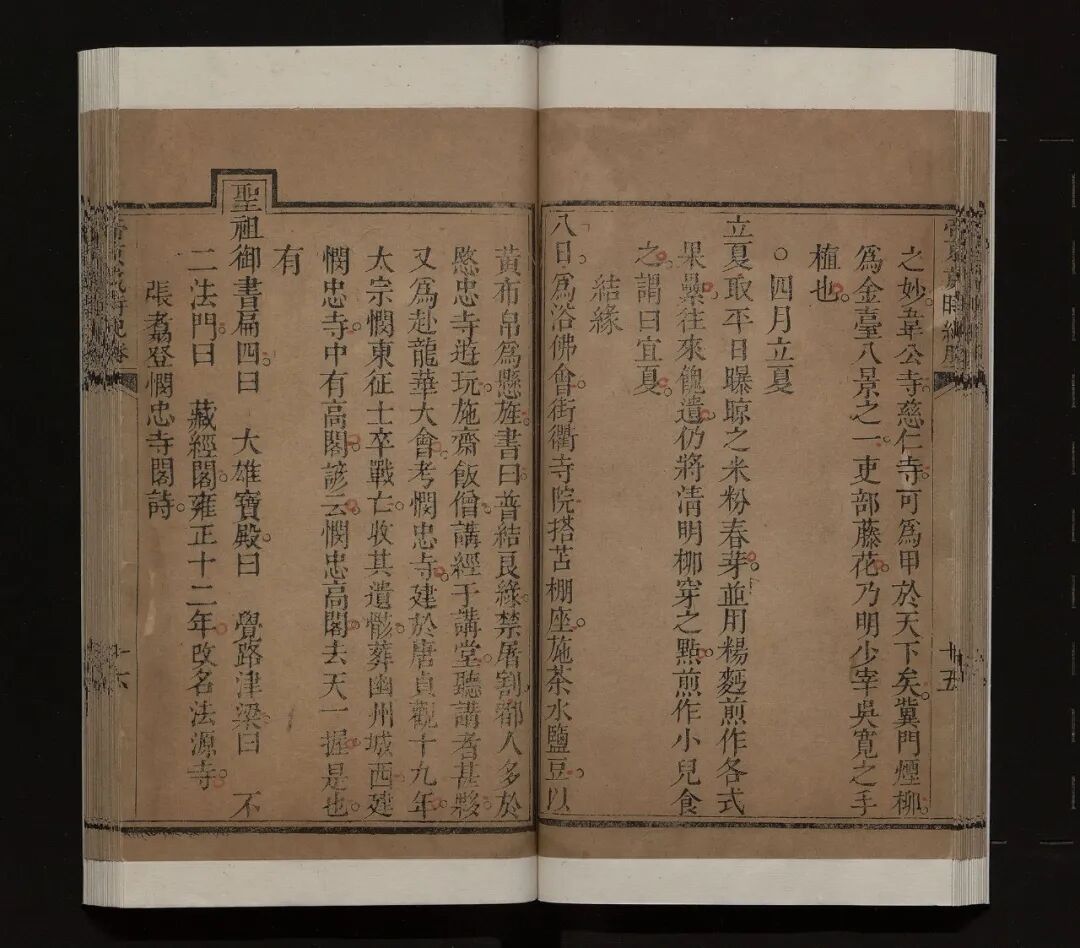 之妙。韋公寺慈仁寺。可爲甲於天下矣。冀門煙柳。
爲金臺八景之一。吏部藤花。乃明少宰吳寬之手
植也。
○四月立夏
立夏取平日曝晾之米粉春芽。並用糖麪煎作各式
果疊。往來餽遺。仍將清明柳穿之點。煎作小兒食
之。謂曰宜夏。
結緣
八日。爲浴佛會。街衢寺院搭苫棚座。施茶水鹽豆。以
黃布帛爲懸旌。書曰。普結良緣。禁屠割。都人多於
愍忠寺遊玩。施齋飯僧。講經于講堂。聽講者甚夥。
又爲赴龍華大會。考憫忠寺。建於唐貞觀十九年。
太宗憫東征士卒戰亡。收其遺骸。葬幽州城西。建
憫忠寺。中有高閣。諺云。憫忠高閣。去天一握。是也。
有
聖祖御書扁四。曰 大雄寶殿。曰 覺路津梁。曰 不
二法門。曰 藏經閣。雍正十二年。改名法源寺。
張翥登憫忠寺閣詩。
十五
十六